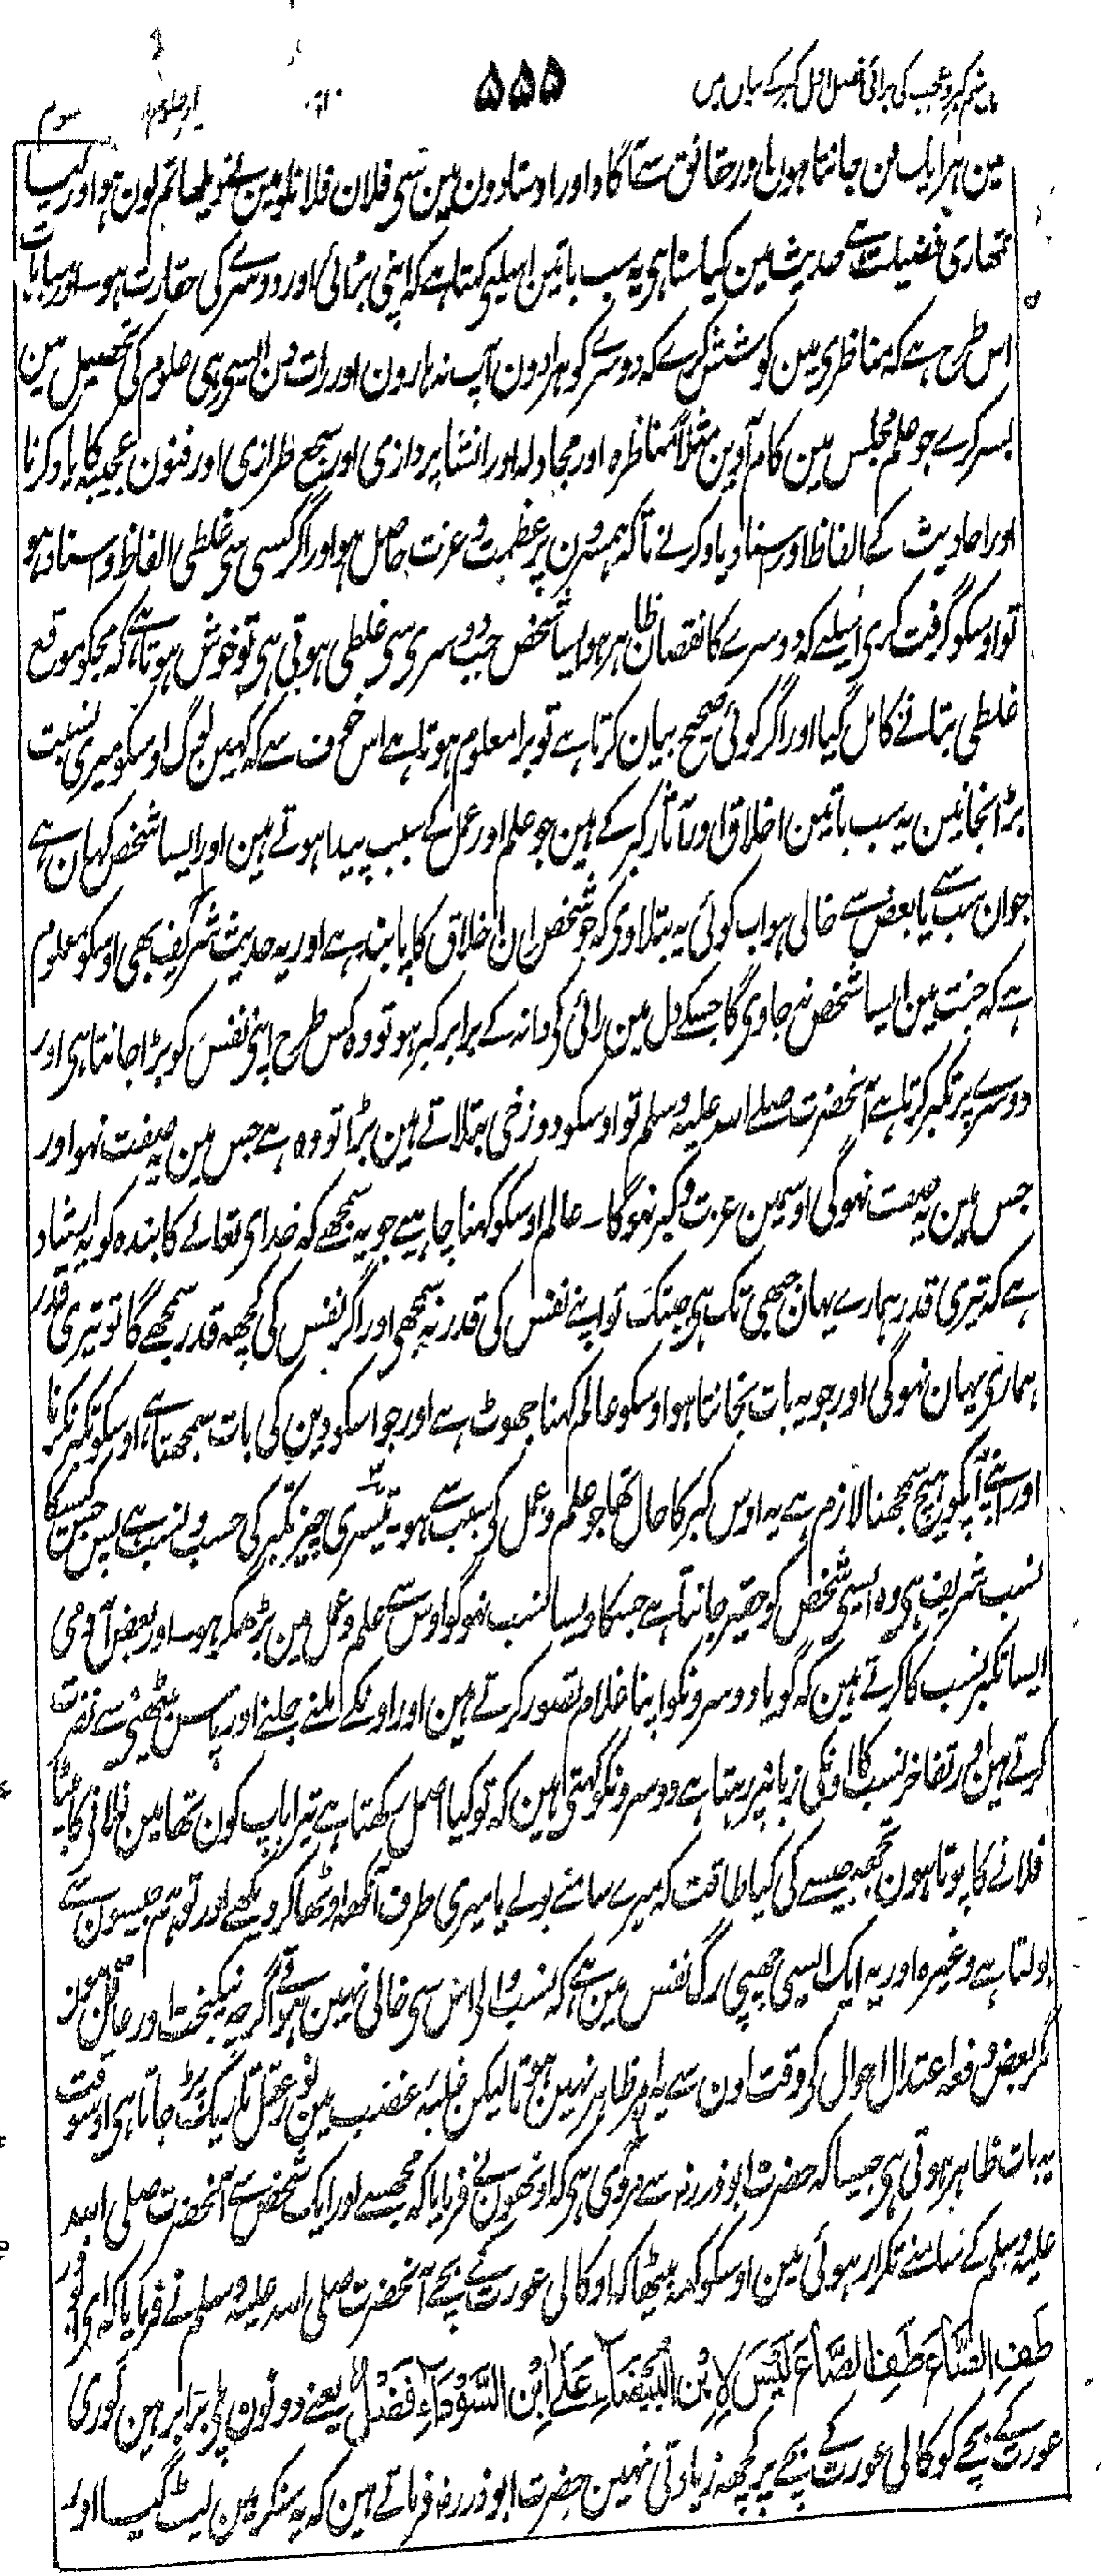 ۵۵۵
مین ہر ایک فن جانتا ہون اور حقائق سے آگاہ اور اوستادون مین سی فلان فلانکو مین نے دیکھا تم کون ہو اور کیا
تمھاری فضیلت ہے حدیث مین کیا سنا ہی یہ سب باتین اسلیے کہتا ہے کہ اپنی بڑائی اور دوسرے کی حقارت ہو اور مباہات
اس طرح ہے کہ مناظری مین کوشش کرے کہ دوسرے کو ہرادون آپ نہ ہارون اور رات دن ایسی ہی علوم کی تحصیل مین
بسر کرے جو علم مجلس مین کام آوین مثلاً مناظرہ اور مجادلہ اور انشا پردازی اور سجع طرازی اور فنون عجیبہ کا یاد کرنا
اور احادیث کے الفاظ اور سناد یاد کرنے تاکہ ہمسرون پر عظمت و عزت حاصل ہو اور اگر کسی سی غلطی الفاظ و سناد مین ہو
تو اوسکو گرفت کری اسلیے کہ دوسرے کا نقصان ظاہر ہو ایسا شخص جب دوسری سی غلطی ہوتی ہی تو خوش ہوتا ہے کہ مجکو موقع
غلطی بتانے کا مل گیا اور اگر کوئی صحیح بیان کرتا ہے تو برا معلوم ہوتا ہے اس خوف سے کہ کہین لوگ اوسکو میری نسبت
بڑا نجانین یہ سب باتین اخلاق اور آثار کبر کے ہین جو علم اور عمل کے سبب پیدا ہوتے ہین اور ایسا شخص کہان ہے
جو ان سب سے یا بعض سے خالی ہو اب کوئی یہ بتلاوی کہ جو شخص ان اخلاق کا پابند ہے اور یہ حدیث شریف بھی اوسکو معلوم
ہے کہ جنت مین ایسا شخص نہ جاوی گا جسکے دل مین رائی کی دانہ کے برابر کبر ہو تو وہ کس طرح اپنی نفس کو بڑا جانتا ہی اور
دوسرے پر تکبر کرتا ہے آنحضرت صلے اللہ علیہ وسلم تو اوسکو دوزخی بتلاتے ہین بڑا تو وہ ہے جس مین یہ صفت نہو اور
جس مین یہ صفت نہو گی اوسمین عزت و کبر نہو گا ۔ عالم اوسکو کہنا چاہیے جو یہ سمجھے کہ خدای تعالے کا بندہ کو یہ ارشاد
ہے کہ تیری قدر ہمارے یہان جبھی تک ہی جبتک تو اپنے نفس کی قدر نہ سمجھی اور اگر نفس کی کچھ قدر سمجھے گا تو تیری قدر
ہماری یہان نہوگی اور جو یہ بات نجانتا ہو اوسکو عالم کہنا جھوٹ ہے اور جو اسکو دین کی بات سمجھتا ہے اوسکو تکبر نکرنا
اور اپنے آپکو ہیچ سمجھنا لازم ہے یہ اوس کبر کا حال تھا جو علم و عمل کی سبب سے ہو یہ تیسری چیز تکبر کی حسب و نسب ہے پس جس کسیکا
نسب شریف ہی وہ ایسی شخص کو حقیر جانتا ہے جسکا ویسا نسب نہو گو اوس سے علم و عمل مین بڑھکر ہو اور بعض آدمی
ایسا تکبر نسب کا کرتے ہین کہ گویا دوسرونکو اپنا غلام تصور کرتے ہین اور اونکے ملنے جلنے اور پاس بیٹھنی سے نفرت
کرتے ہین اور تفاخر نسب کا اونکی زبانپر رہتا ہے دوسرونکو کہتی ہین کہ تو کیا اصل رکھتا ہے تیرا باپ کون تھا مین فلانی کا بیٹا
فلانے کا پوتا ہون تجھ جیسے کی کیا طاقت کہ میرے سامنے بولے یا میری طرف آنکھ اوٹھا کر دیکھے اور تو ہم جیسون سے
بولتا ہے وغیرہ اور یہ ایک ایسی چھپی رگ نفس مین ہے کہ نسب والی اس سی خالی نہین ہوتے اگرچہ نیکبخت اور عاقل ہون
مگر بعض دفعہ اعتدال احوال کی وقت اون سے یہ امر ظاہر نہین ہوتا لیکن غلبۂ غضب مین نور عقل تاریک پڑ جاتا ہی اوسوقت
یہ بات ظاہر ہوتی ہی جیسا کہ حضرت ابو ذر رضہ سے مروی ہی کہ اونھون نے فرمایا کہ مجھسے اور ایک شخص سے آنحضرت صلی اللہ
علیہ وسلم کے سامنے تکرار ہوئی مین اوسکو کہہ بیٹھا کہ او کالی عورت کے بچے آنحضرت صلی اللہ علیہ وسلم نے فرمایا کہ ای ابو ذر
طَفِ الصَّاعَ طَفِ الصَّاعَ لَيْسَ لِاِبْنِ الْبَيْضَآءِ عَلَے اِبْنِ السَّوْدَآءِ فَضْلٌ یعنے دونون پلے برابر ہین گوری
عورت کے بچے کو کالی عورت کے بچے پر کچھ زیادتی نہین حضرت ابو ذر رضہ فرماتے ہین کہ یہ سنکر مین لیٹ گیا اور